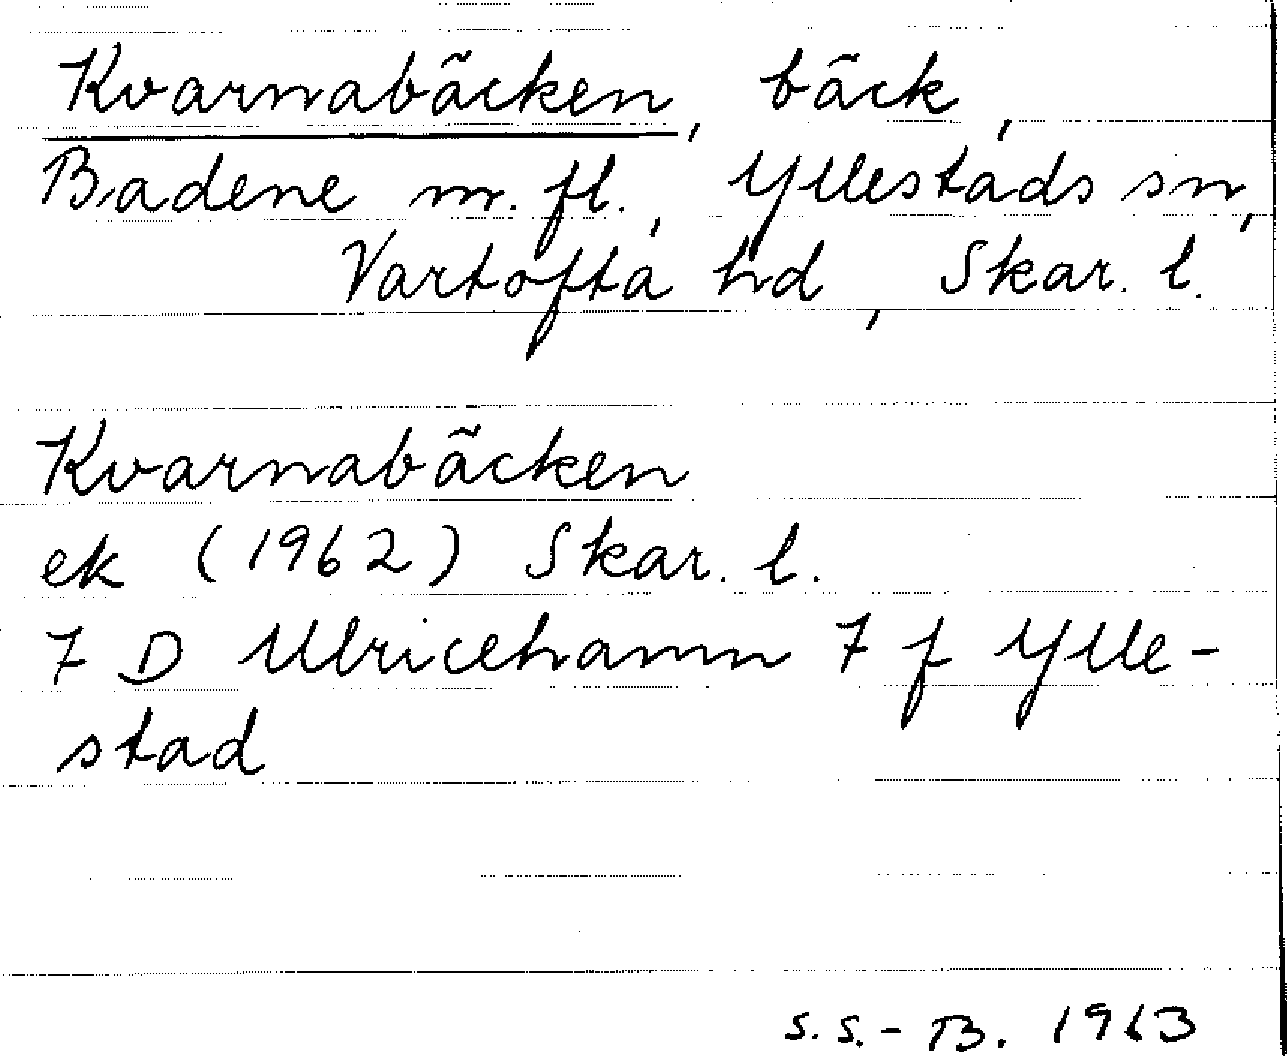 Kvarnabäcken, bäck,
Badene m. fl., Yllestads sn,
Vartofta hd, Skar. l.
Kvarnabäcken
ek (1962) Skar. l.
7 D Ulricehamn 7 f Ylle-
stad
S.S.-B. 1963